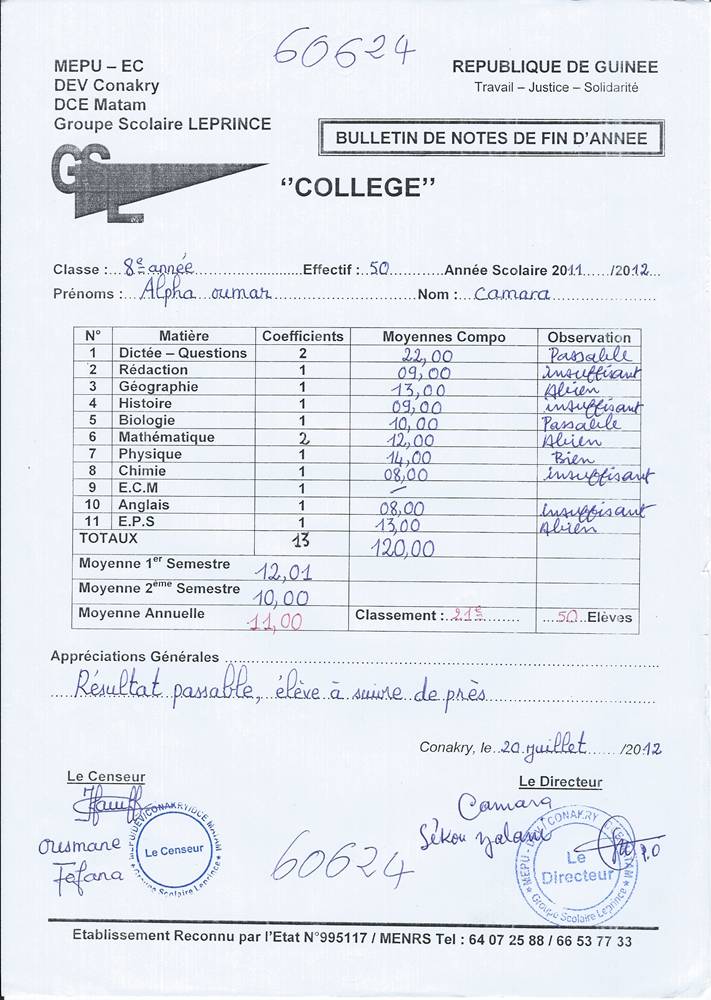 60624
MEPU – EC
DEV Conakry
DCE Matam
Groupe Scolaire LEPRINCE
REPUBLIQUE DE GUINEE
Travail – Justice – Solidarité
BULLETIN DE NOTES DE FIN D'ANNEE
GSL
‘‘COLLEGE’’
Classe :...8e année.......Effectif : .50.......Année Scolaire 2011....../2012...
Prénoms :...Alpha oumar.......Nom :...Camara.......
N° Matière Coefficients Moyennes Compo Observation
1 Dictée – Questions 2 22,00 Passable
2 Rédaction 1 09,00 insuffisant
3 Géographie 1 13,00 Abien
4 Histoire 1 09,00 insuffisant
5 Biologie 1 10,00 Passable
6 Mathématique 2 12,00 Abien
7 Physique 1 14,00 Bien
8 Chimie 1 08,00 insuffisant
9 E.C.M 1 –
10 Anglais 1 08,00 insuffisant
11 E.P.S 1 13,00 Abien
TOTAUX 13 120,00
Moyenne 1er Semestre 12,01
Moyenne 2ème Semestre 10,00
Moyenne Annuelle 11,00 Classement : 21e........ ...50..Elèves
Appréciations Générales .......
Résultat passable, élève à suivre de près
Conakry, le..20 juillet....../2012
Le Censeur
Le Directeur
Camara
Sékou yalani
P.O
Ousmane
Fofana
MEPU/DEV/CONAKRY/DCE MATAM
Le Censeur
Groupe Scolaire Leprince
MEPU - DEV CONAKRY
Le
Directeur
Groupe Scolaire Leprince
60624
Etablissement Reconnu par l'Etat N°995117 / MENRS Tel : 64 07 25 88 / 66 53 77 33